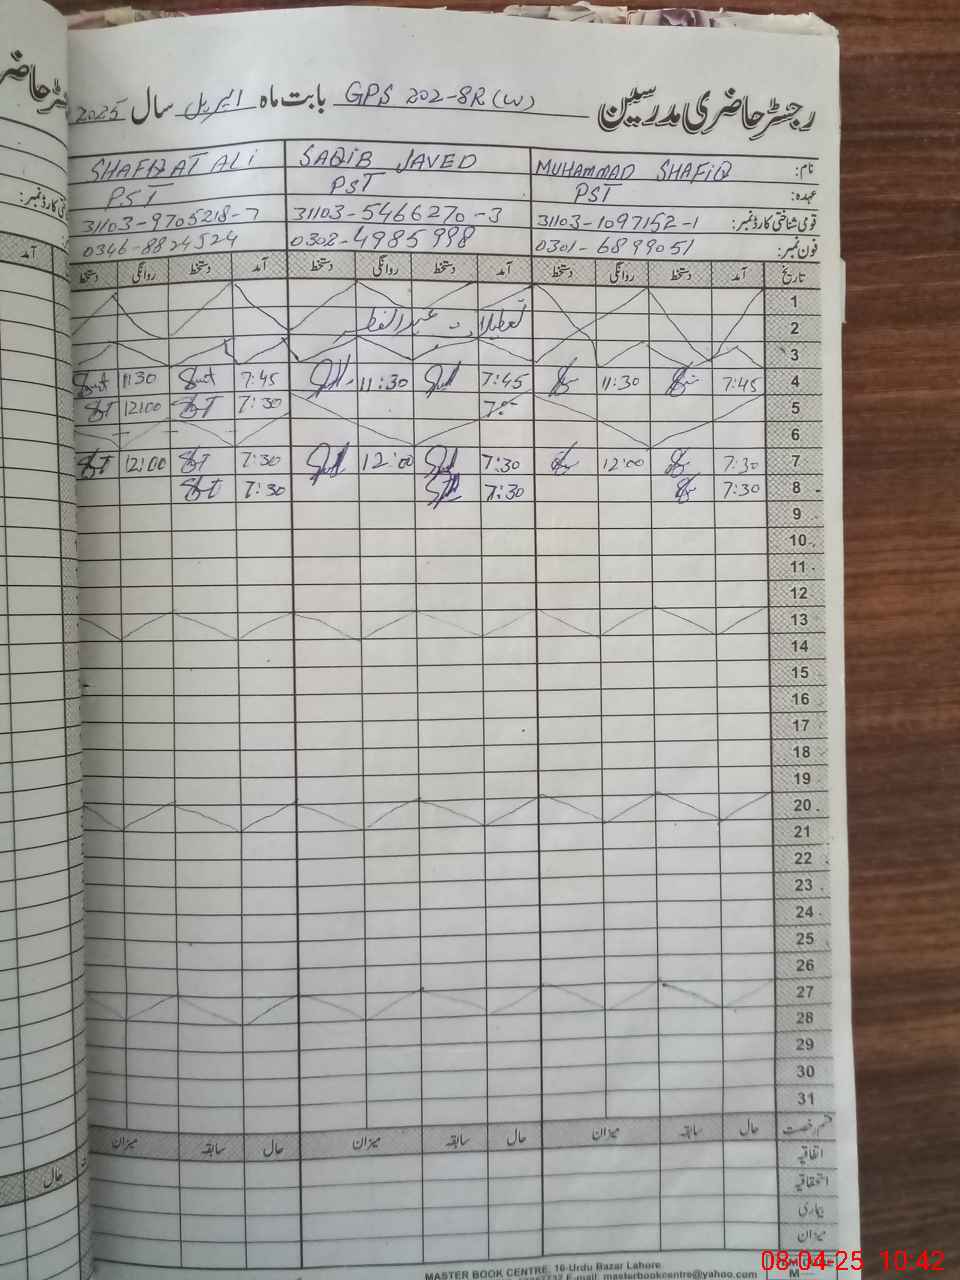 رجسٹر حاضری مدرسین GPS 202-8R (W) بابت ماہ اپریل سال 2025
نام: MUHAMMAD SHAFIQ SAQIB JAVED SHAFQAT ALI
عہدہ: PST PST PST
قومی شناختی کارڈ نمبر: 31103-1097152-1 31103-5466270-3 31103-9705218-7
فون نمبر: 0301-6899051 0302-4985998 0346-8824524
تاریخ آمد دستخط روانگی دستخط آمد دستخط روانگی دستخط آمد دستخط روانگی دستخط
1
2 تعطیلات عیدالفطر
3
4 7:45 11:30 7:45 11:30 7:45 11:30
5 7:30 12:00
6
7 7:30 12:00 7:30 12:00 7:30 12:00
8 7:30 7:30 7:30
9
10
11
12
13
14
15
16
17
18
19
20
21
22
23
24
25
26
27
28
29
30
31
قسم رخصت حال سابقہ میزان حال سابقہ میزان حال سابقہ میزان
اتفاقیہ
استحقاقیہ
بیماری
میزان
حال
MASTER BOOK CENTRE, 10-Urdu Bazar Lahore
E-mail: masterbookcentre@yahoo.com
08-04-25 10:42